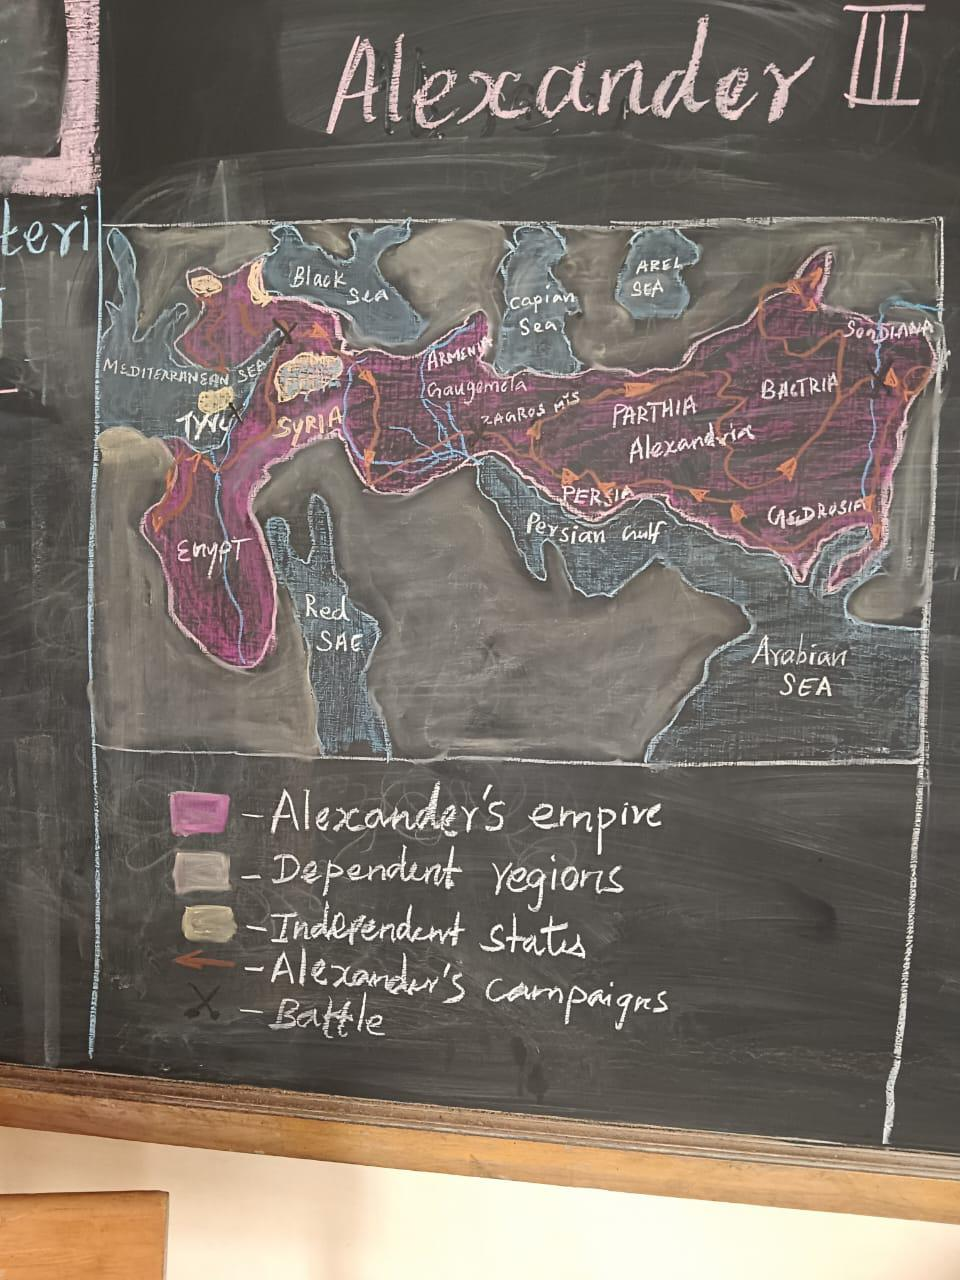 Alexander III
teri
Black
Sea
Capian
Sea
AREL
SEA
SOGDIANA
MEDITERRANEAN SEA
ARMENIA
Gaugemela
ZAGROS MTS
PARTHIA
BACTRIA
Alexandria
SYRIA
PERSIA
GEDROSIA
Persian Gulf
Egypt
Red
SAE
Arabian
SEA
- Alexander's empire
- Dependent regions
- Independent states
- Alexander's campaigns
- Battle